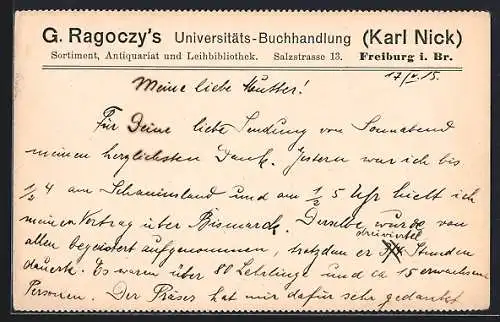 G. Ragoczy's Universitäts-Buchhandlung (Karl Nick)
Sortiment, Antiquariat und Leihbibliothek. Salzstrasse 13. Freiburg i. Br.
17/V. 15.
Meine liebe Mutter!
Für Deine liebe Sendung von Sonnabend
meinen herzlichsten Dank. Gestern war ich bis
1/2 4 am Schauinsland und am 1/2 5 Uhr hielt ich
meinen Vortrag über Bismarck. Derselbe wurde von
allen begeistert aufgenommen, trotzdem er dreiviertel Stunden
dauerte. Es waren über 80 Lehrlinge und ca 15 erwachsene
Personen. Der Präses hat mir dafür sehr gedankt